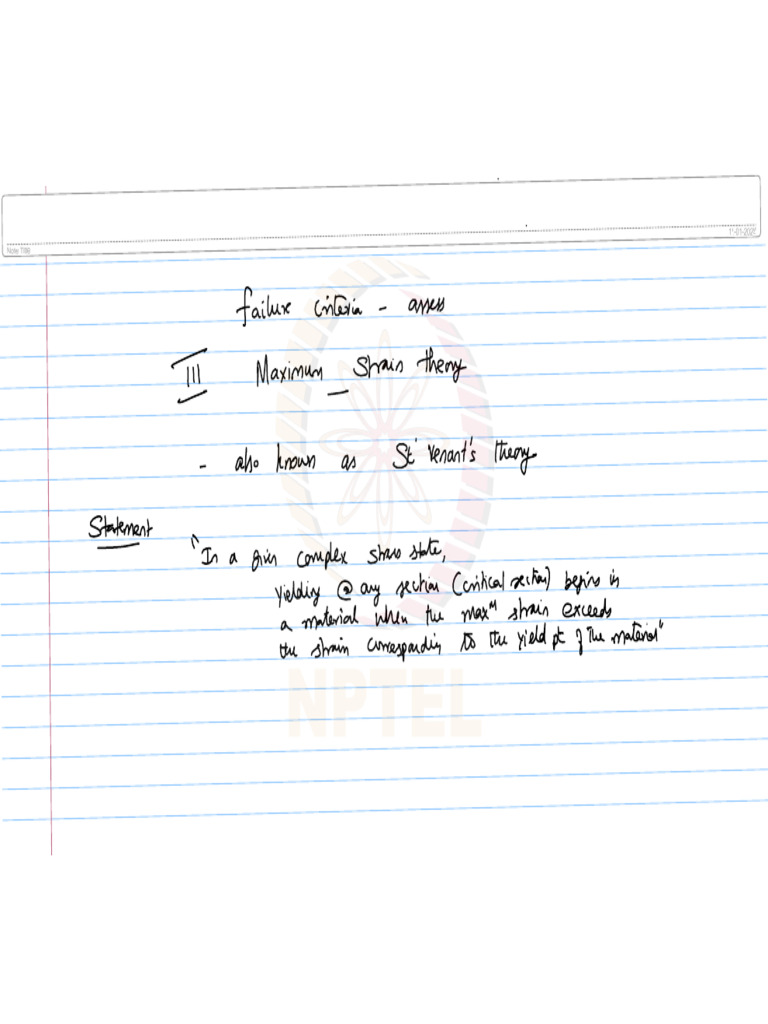 Note Title
11-01-2025
failure criteria - assess
III Maximum Strain theory
- also known as St' Venant's theory
Statement
"In a given complex stress state,
yielding @ any section (critical section) begins in
a material when the max^m strain exceeds
the strain corresponding to the yield pt of the material"
NPTEL